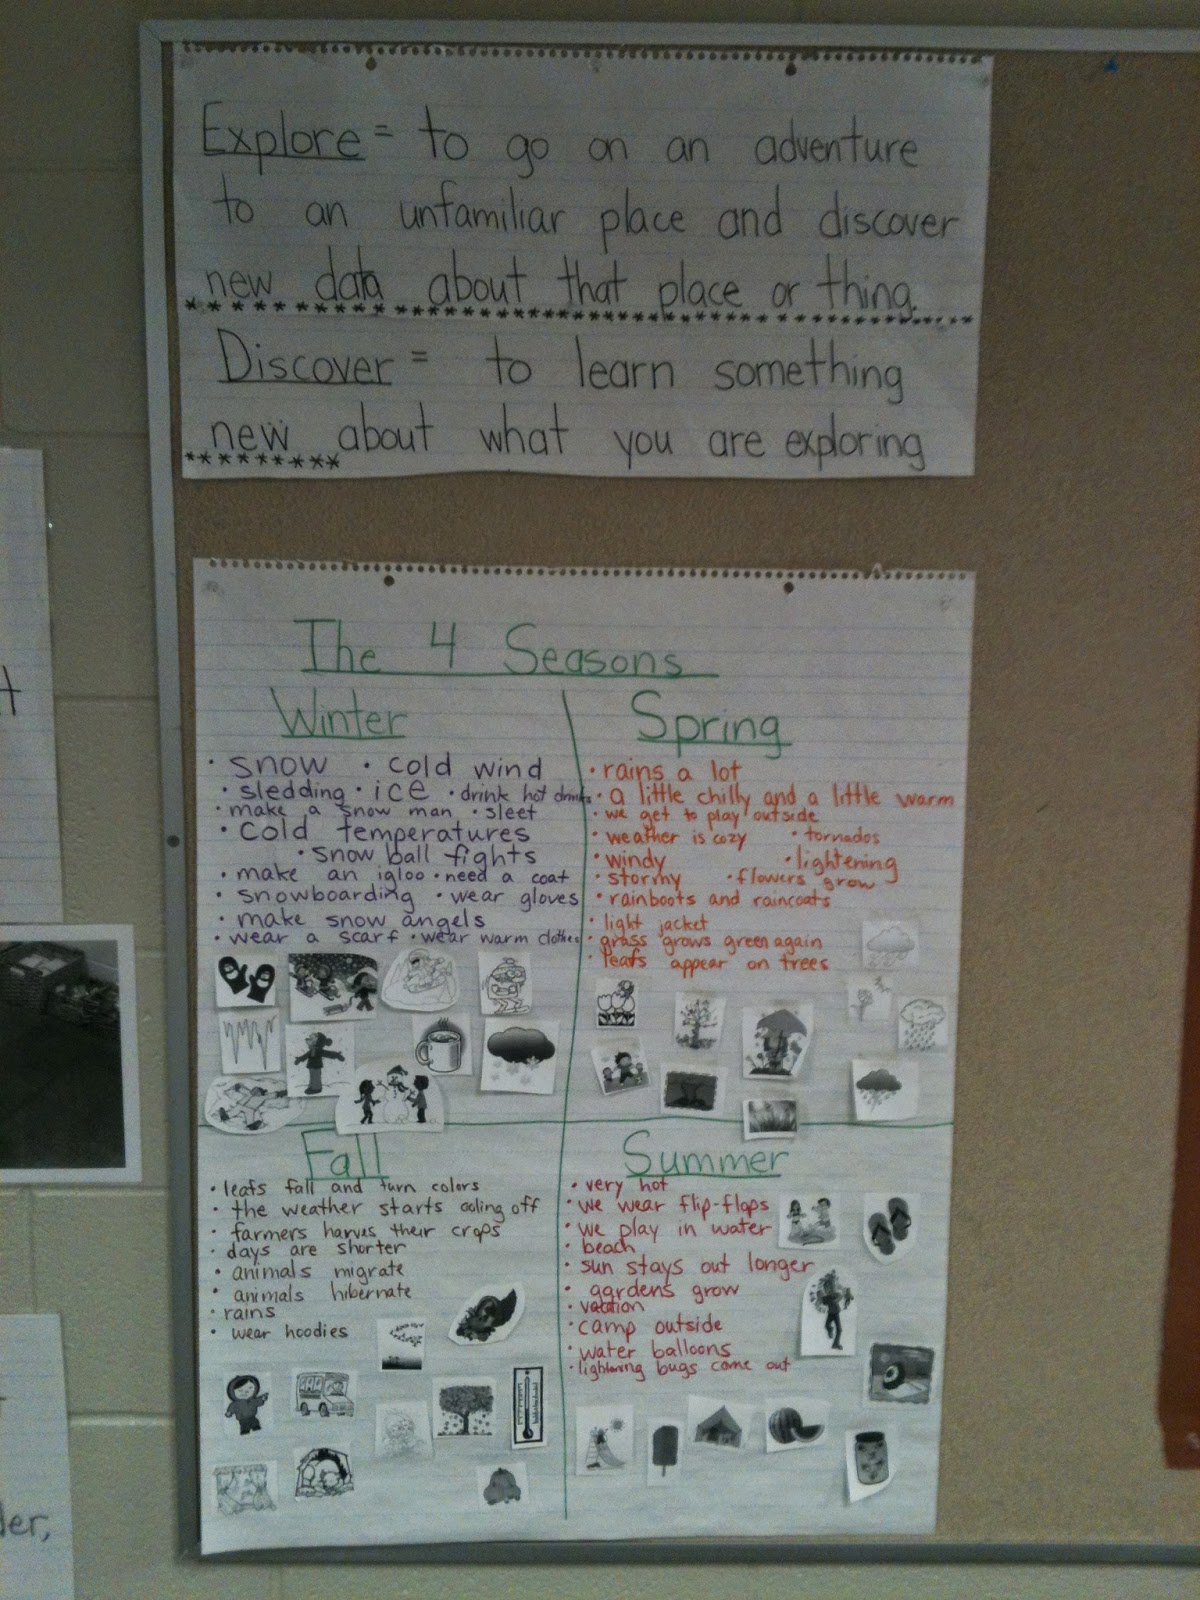 Explore = to go on an adventure
to an unfamiliar place and discover
new data about that place or thing.
*********************************************************
Discover = to learn something
new about what you are exploring
*********
The 4 Seasons
Winter
• snow • cold wind
• sledding • ice • drink hot drinks
• make a snow man • sleet
• cold temperatures
• snow ball fights
• make an igloo • need a coat
• snowboarding • wear gloves
• make snow angels
• wear a scarf • wear warm clothes
Spring
• rains a lot
• a little chilly and a little warm
• we get to play outside
• weather is cozy • tornados
• windy • lightening
• stormy • flowers grow
• rainboots and raincoats
• light jacket
• grass grows green again
• leafs appear on trees
Fall
• leafs fall and turn colors
• the weather starts cooling off
• farmers harves their crops
• days are shorter
• animals migrate
• animals hibernate
• rains
• wear hoodies
Summer
• very hot
• we wear flip-flops
• we play in water
• beach
• sun stays out longer
• gardens grow
• vacation
• camp outside
• water balloons
• lightening bugs come out
der,